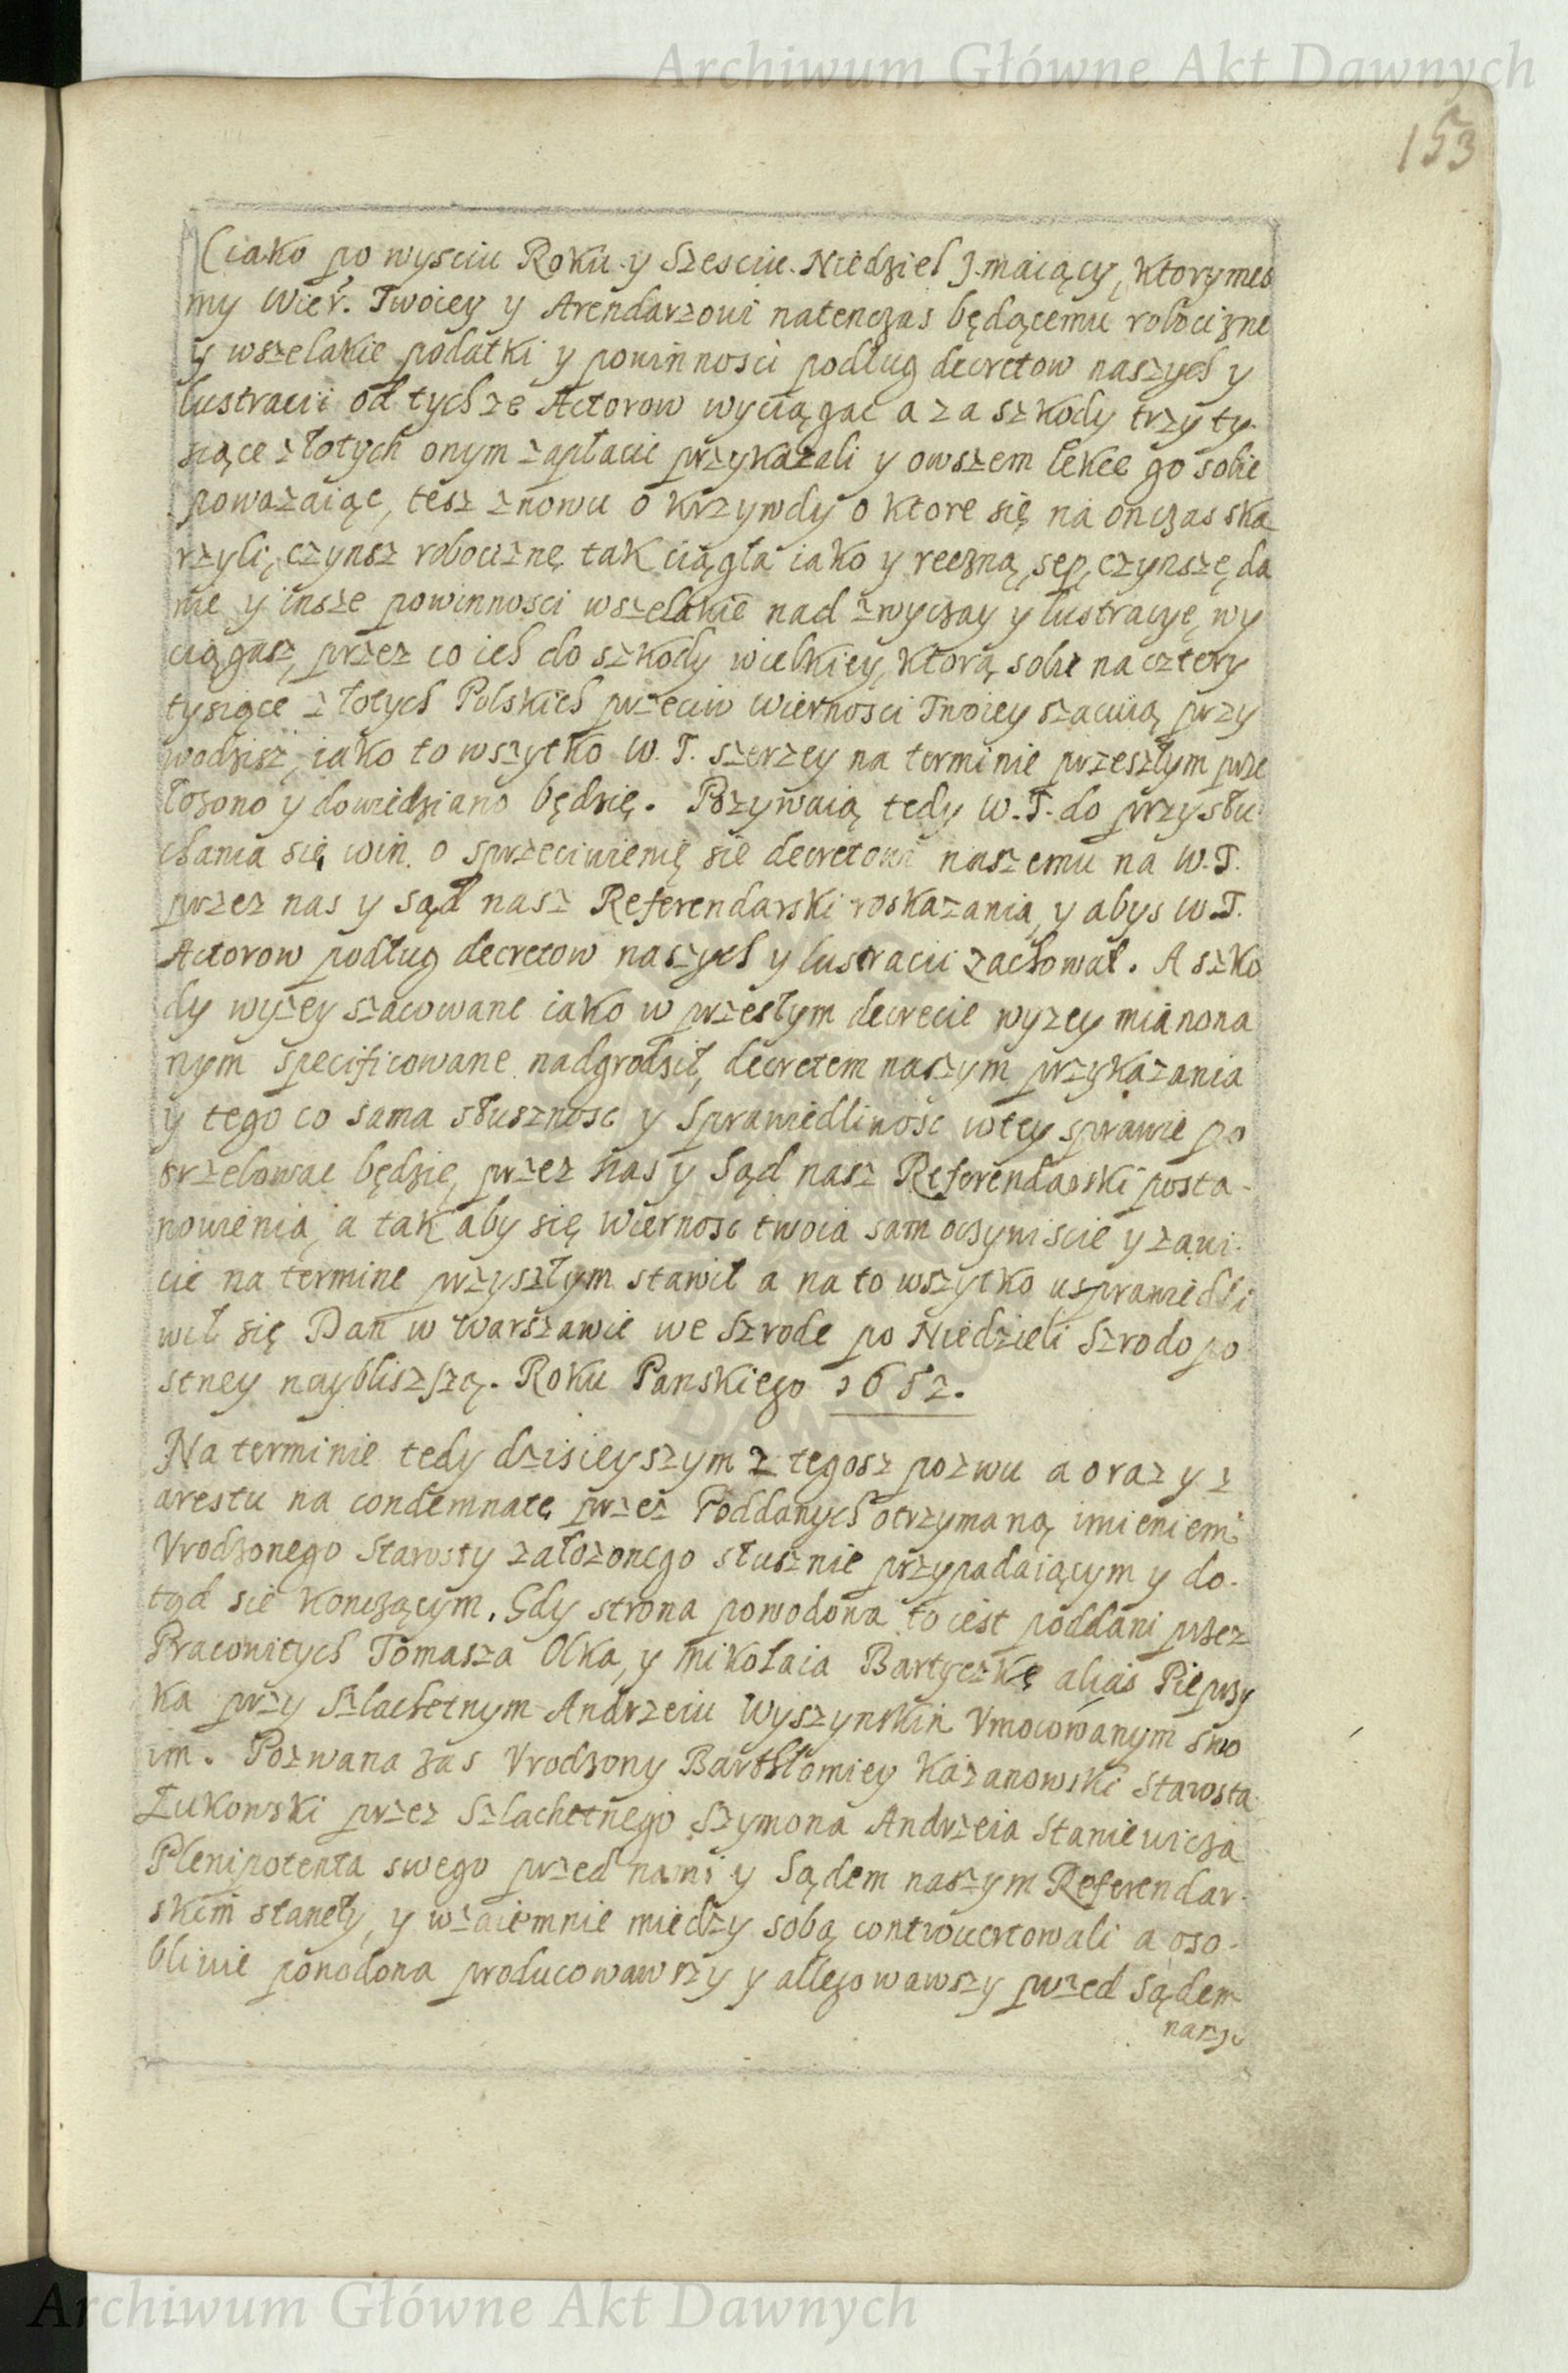 Archiwum Główne Akt Dawnych
153
(iako po wysciu Roku y Szesciu Niedziel) maiący, ktorymes
my Wier. Twoiey y Arendarzowi natenczas będącemu robociznę
y wszelakie podatki y powinnosci podług decretow naszych y
lustracii od tychze Actorow wyciągac a za szkody trzy ty-
siące złotych onym zapłacic przykazali y owszem lekce go sobie
poważaiąc, tesz znowu o krzywdy o ktore się na onczas ska
rzyli, czynsz robociznę tak ciągła iako y ręczną, sep, czynszę, da
nie y insze powinnosci wszelakie nad zwyczay y lustracyę, wy
ciągasz, przez co ich do szkody wielkiey, ktorą sobie na cztery
tysiące złotych Polskich przeciw Wiernosci Twoiey szacuią przy
wodzisz, iako to wszytko W. T. szerzey na terminie przeszłym prze
łozono y dowiedziano będzię. Pozywaią tedy W. T. do przysłu-
chania się win o sprzeciwienię się decretowi naszemu na W. T.
przez nas y sąd nasz Referendarski roskazania, y abys W. T.
Actorow podług decretow naszych y lustracii zachował. A szko
dy wyzey szacowane iako w przesłym decrecie wyzey mianona
nym specificowane nadgrodził, decretem naszym przykazania
y tego co sama słusznosc y sprawiedliwosc w tey sprawie po
trzebowac będzię, przez nas y Sąd nasz Referendarski posta-
nowienia, a tak aby się Wiernosc twoia sam oczywiscie y zawi-
cie na termine przyszłym stawił a na to wszytko usprawiedli
wił się Dan w Warszawie we Szrode po Niedzieli Szrodopo
stney naybliszszą. Roku Panskiego 1652.
Na terminie tedy dzisieyszym z tegosz pozwu a oraz y z
arestu na condemnatę przez Poddanych otrzymaną imieniem
Vrodzonego Starosty załozonego słusznie przypadaiącym y do-
tąd sie konczącym. Gdy strona powodowa to iest poddani przez
Pracowitych Tomasza Olka, y Mikołaia Bartyczkę aliąs Piepszy
ka przy Szlachetnym Andrzeiu Wyszynskim Vmocowanym swo
im. Pozwana zas Vrodzony Barthłomiey Kazanowski Starosta
Łukowski przez Szlachetnego Szymona Andrzeia Staniewicza
Plenipotenta swego przed nami y Sądem naszym Referendar-
skim stanęły, y wzaiemnie między sobą controuertowali a oso-
bliwie powodowa producowawszy y allegowawszy przed Sądem
naszy
Archiwum Główne Akt Dawnych